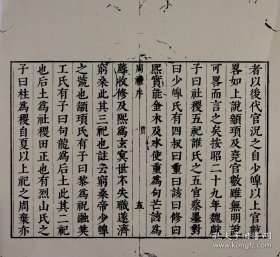 者以後代官況之自少皥以上官數
畧如上說顓頊及堯官數雖無明說
可畧而言之矣按昭二十九年魏獻
子曰社稷五祀誰氏之五官蔡墨對
曰少皥氏有四叔曰重曰該曰修曰
周禮序 五
熙實能金木及水使重為句芒該為
蓐收修及熙為玄冥世不失職遂濟
窮桑此其三祀也註云窮桑帝少皥
之號也顓頊氏有子曰黎為祝融共
工氏有子曰句龍為后土此其二祀
也后土為社稷田正也有烈山氏之
子曰柱為稷自夏以上祀之周棄亦